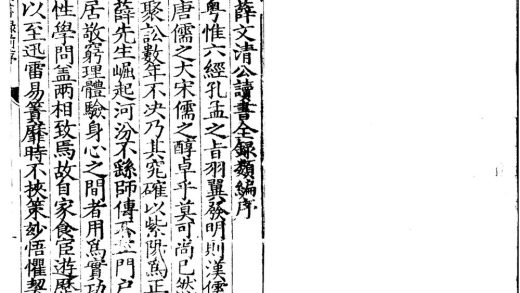 薛文清公讀書全録類編序
粤惟六經孔孟之㫖羽翼發明則漢儒
唐儒之大宋儒之醇卓乎莫可尚已然
聚訟數年不决乃其究確以紫陽爲正
薛先生崛起河汾不繇師傳不立門户
居敬窮理體驗身心之間者用爲實功
性學問盖兩相致焉故自家食宦遊歷
以至迅雷易簀靡時不挾策妙悟懼契